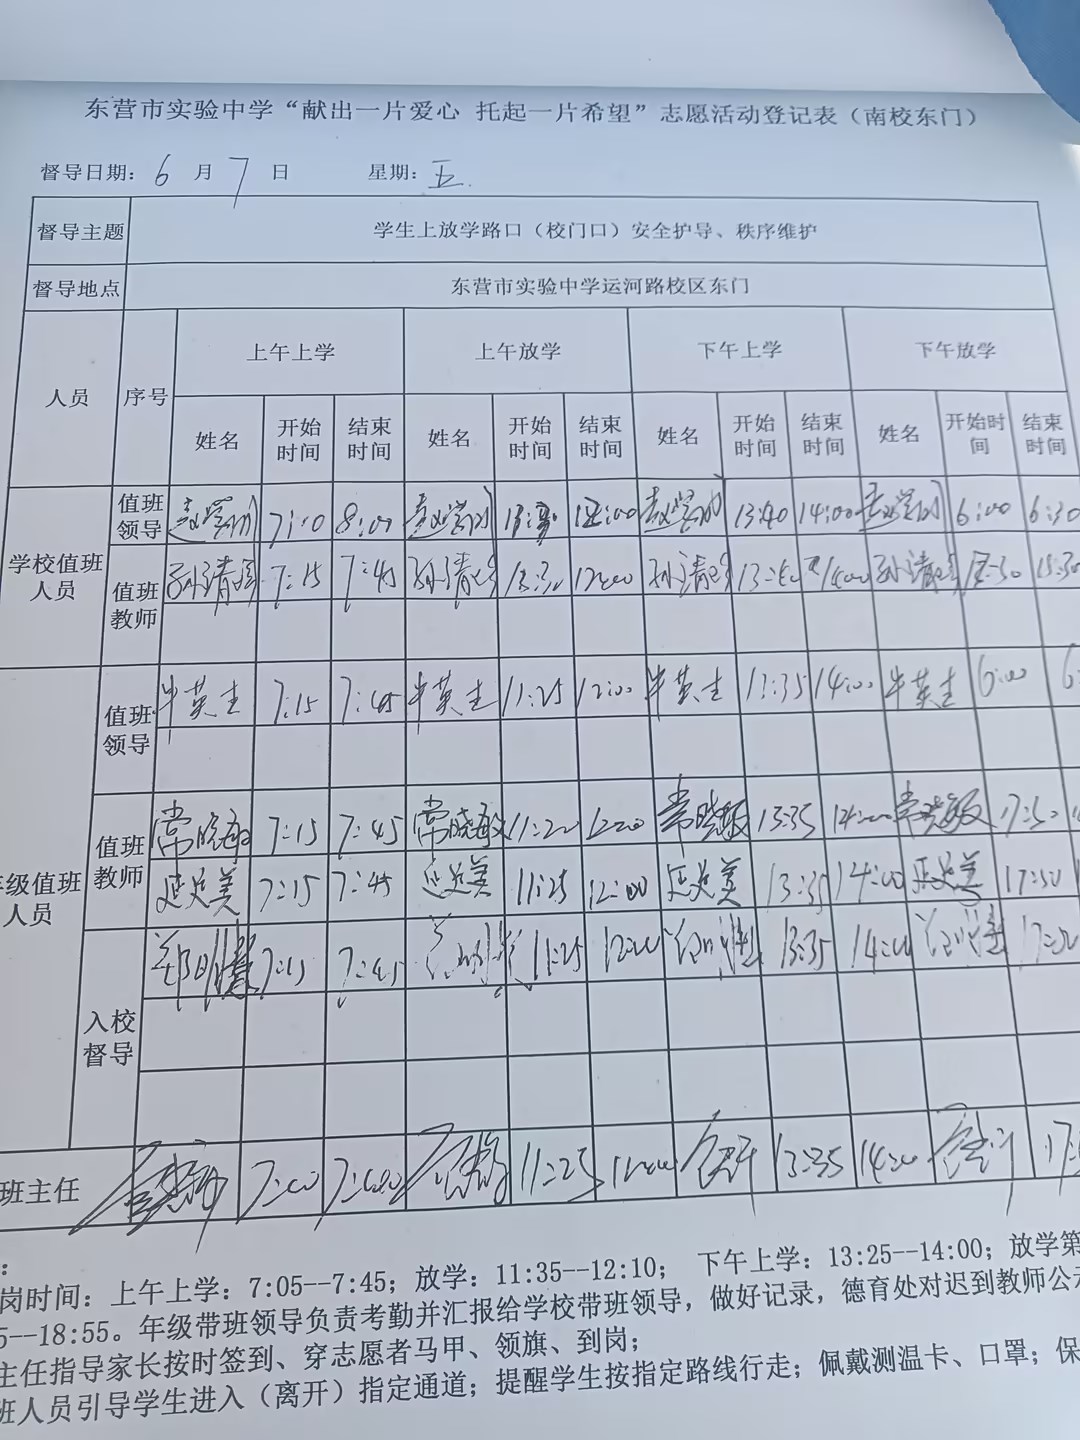 东营市实验中学“献出一片爱心 托起一片希望”志愿活动登记表（南校东门）
督导日期：6月7日 星期：五
督导主题 学生上放学路口（校门口）安全护导、秩序维护
督导地点 东营市实验中学运河路校区东门
人员 序号 上午上学 上午放学 下午上学 下午放学
姓名 开始时间 结束时间 姓名 开始时间 结束时间 姓名 开始时间 结束时间 姓名 开始时间 结束时间
学校值班人员 值班领导 7:10 8:00 12:00 13:40 14:00 6:00 6:30
值班教师 7:15 7:45 12:00 14:00
级值班人员 值班领导 牛英生 7:15 7:45 牛英生 11:25 12:00 牛英生 13:35 14:00 牛英生 6:00 6
值班教师 常晓敏 7:15 7:45 常晓敏 11:20 12:00 常晓敏 13:35 14:00 常晓敏 17:50
延美 7:15 7:45 延美 11:25 12:00 延美 13:35 14:00 延美 17:50
入校督导 郑明慧 7:15 7:45 11:25 12:00 13:35 14:00
班主任 7:00 11:25 12:00 13:35 14:00 17
：
岗时间：上午上学：7:05--7:45；放学：11:35--12:10； 下午上学：13:25--14:00；放学第
5--18:55。年级带班领导负责考勤并汇报给学校带班领导，做好记录，德育处对迟到教师公
主任指导家长按时签到、穿志愿者马甲、领旗、到岗；
班人员引导学生进入（离开）指定通道；提醒学生按指定路线行走；佩戴测温卡、口罩；保